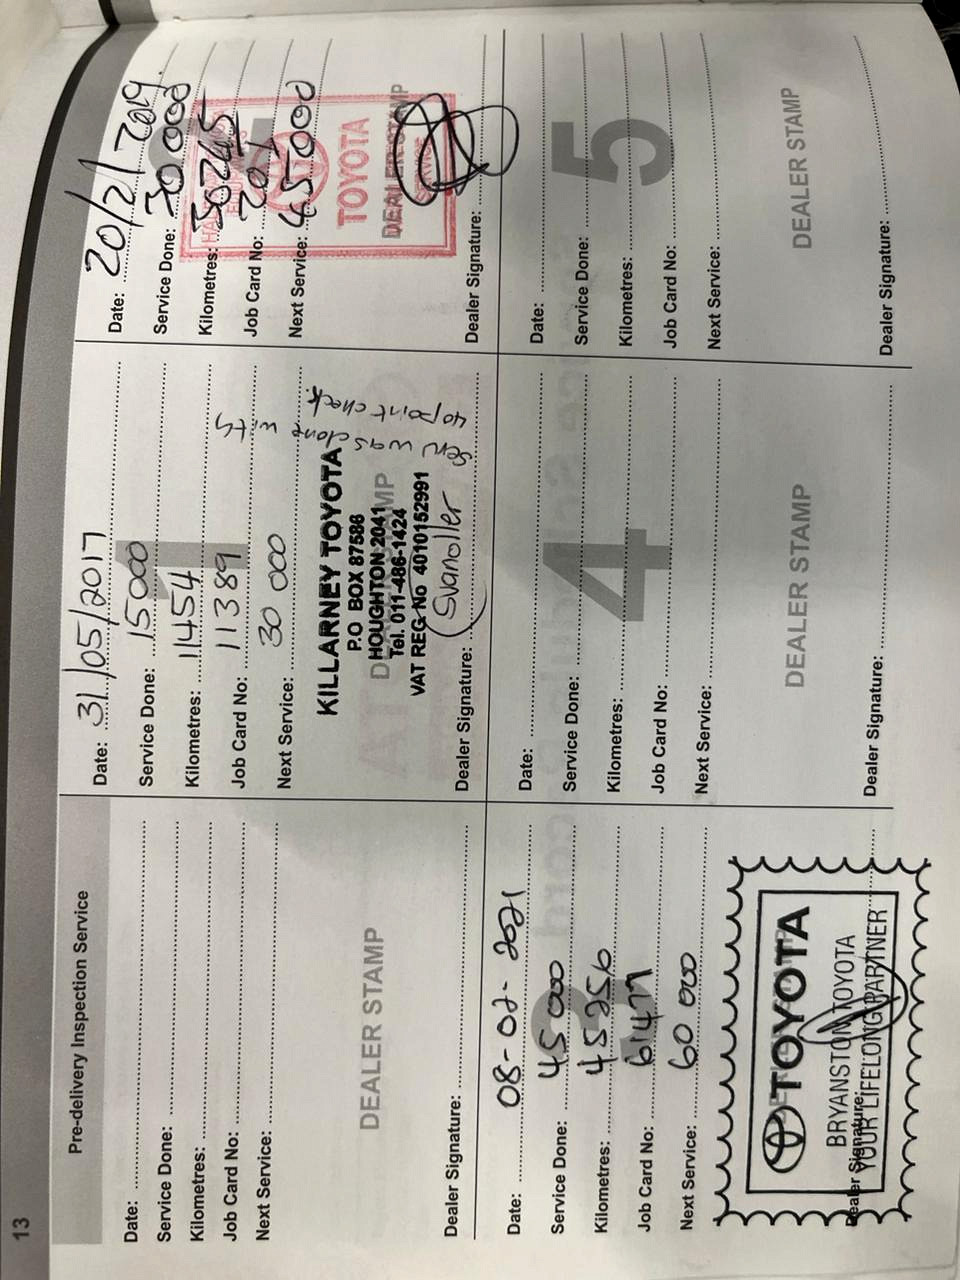 13
Pre-delivery Inspection Service
Date:
Service Done:
Kilometres:
Job Card No:
Next Service:
DEALER STAMP
Dealer Signature:
1
Date: 31/05/2017
Service Done: 15000
Kilometres: 11454
Job Card No: 11389
Next Service: 30 000
KILLARNEY TOYOTA
P.O BOX 87586
HOUGHTON 2041
Tel. 011-486-1424
VAT REG No 4010152991
DEALER STAMP
was done with
40 point check.
Dealer Signature:
Date: 20/2/2019
Service Done: 30 000
Kilometres: 30245
Job Card No: 201
Next Service: 45000
TOYOTA
SERVICE
DEALER STAMP
Dealer Signature:
3
Date: 08-02-2021
Service Done: 45 000
Kilometres: 45256
Job Card No: 61477
Next Service: 60 000
TOYOTA
BRYANSTON TOYOTA
YOUR LIFELONG PARTNER
Dealer Signature:
4
Date:
Service Done:
Kilometres:
Job Card No:
Next Service:
DEALER STAMP
Dealer Signature:
5
Date:
Service Done:
Kilometres:
Job Card No:
Next Service:
DEALER STAMP
Dealer Signature: